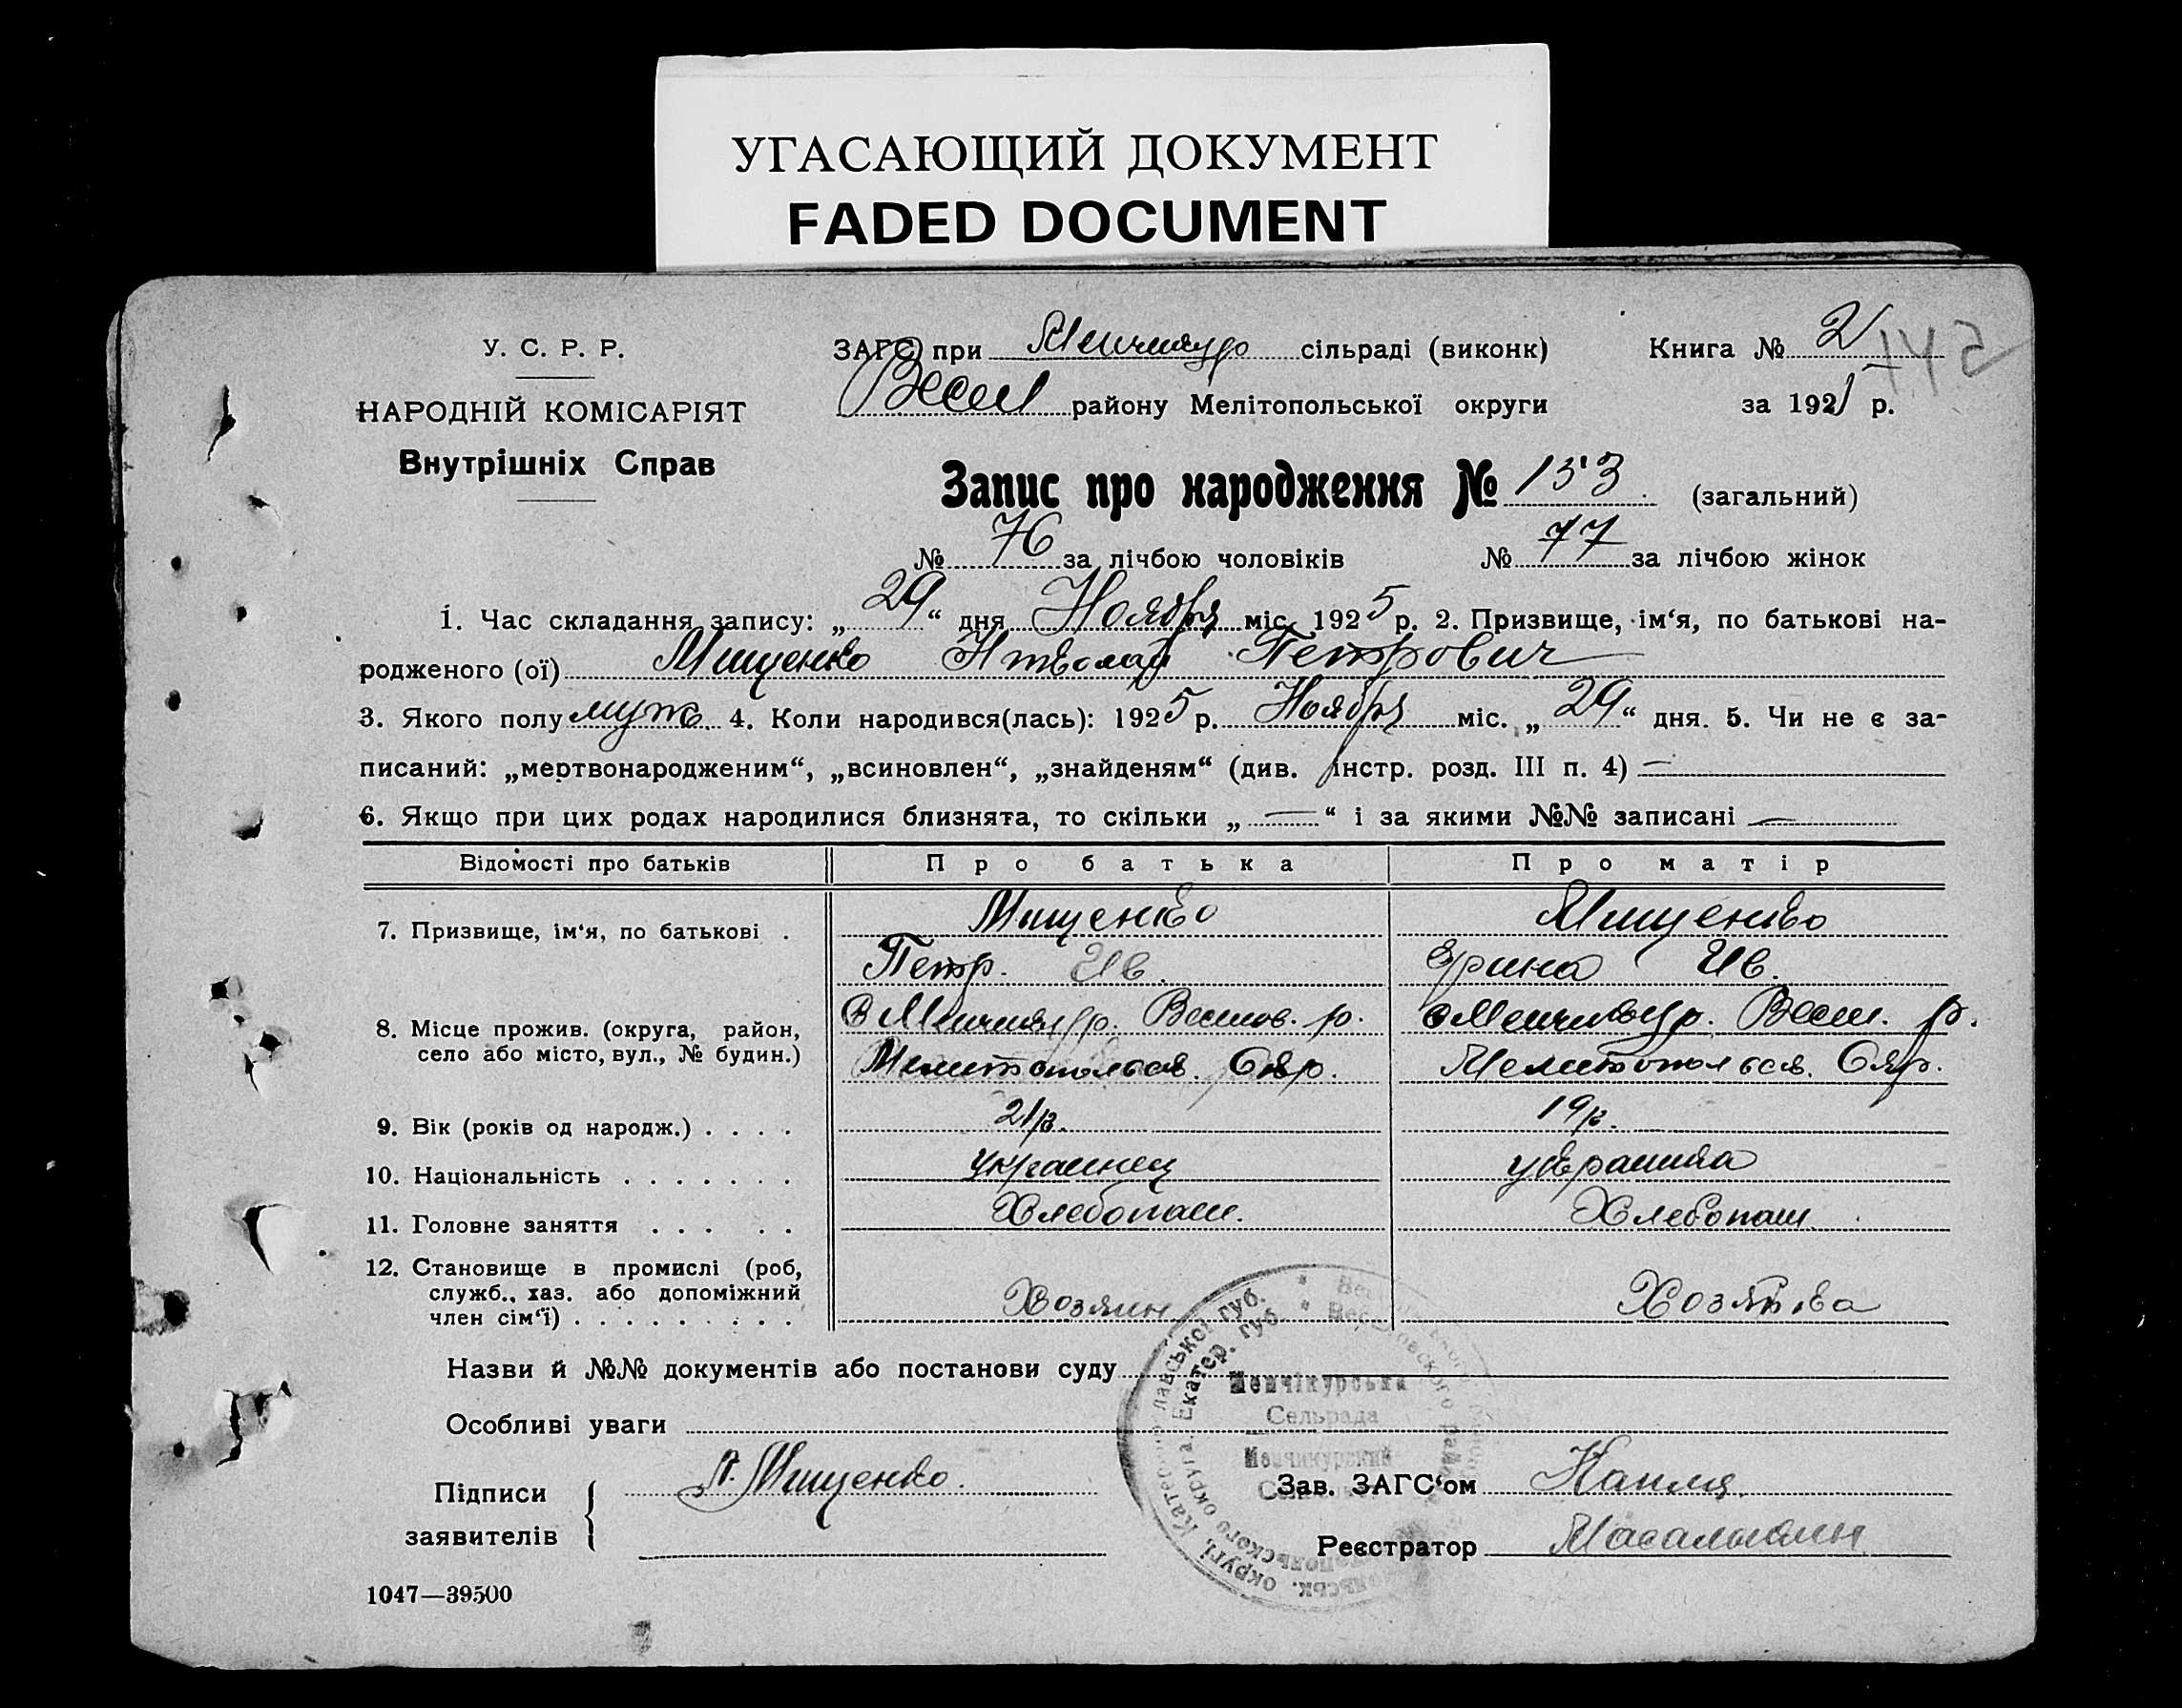 УГАСАЮЩИЙ ДОКУМЕНТ
FADED DOCUMENT
У. С. Р. Р.
НАРОДНІЙ КОМІСАРІЯТ
Внутрішніх Справ
ЗАГС при Менчикур сільраді (виконк)
Весел району Мелітопольської округи
Книга № 2
142
за 1925 р.
Запис про народження № 153 (загальний)
№ 76 за лічбою чоловіків № 77 за лічбою жінок
1. Час складання запису: „29“ дня Ноября міс. 1925 р. 2. Призвище, ім‘я, по батькові на-
родженого (ої) Мищенко Николай Петрович
3. Якого полу муж. 4. Коли народився(лась): 1925 р. Ноября міс. „29“ дня. 5. Чи не є за-
писаний: „мертвонародженим“, „всиновлен“, „знайденям“ (див. інстр. розд. III п. 4) —
6. Якщо при цих родах народилися близнята, то скільки „—“ і за якими №№ записані —
Відомості про батьків Про батька Про матір
7. Призвище, ім‘я, по батькові . Мищенко Мищенко
Петр. Ив. Ирина Ив.
8. Місце прожив. (округа, район, с Менчикур. Веселов. р. с Менчикур. Весел. р.
село або місто, вул., № будин.) Мелитопольск. Окр. Мелитопольск. Окр.
9. Вік (років од народж.) . . . . 21 р. 19 р.
10. Національність . . . . . . . украинец украинка
11. Головне заняття . . . . . Хлебопаш. Хлебопаш.
12. Становище в промислі (роб,
служб., хаз. або допоміжний
член сім‘ї) . . . . . . . . . Хозяин Хозяйка
Назви й №№ документів або постанови суду
Особливі уваги
Менчікурська
Сельрада
Менчикурский
Підписи
заявителів
П. Мищенко.
Зав. ЗАГС‘ом Капля
Реєстратор
1047—39500